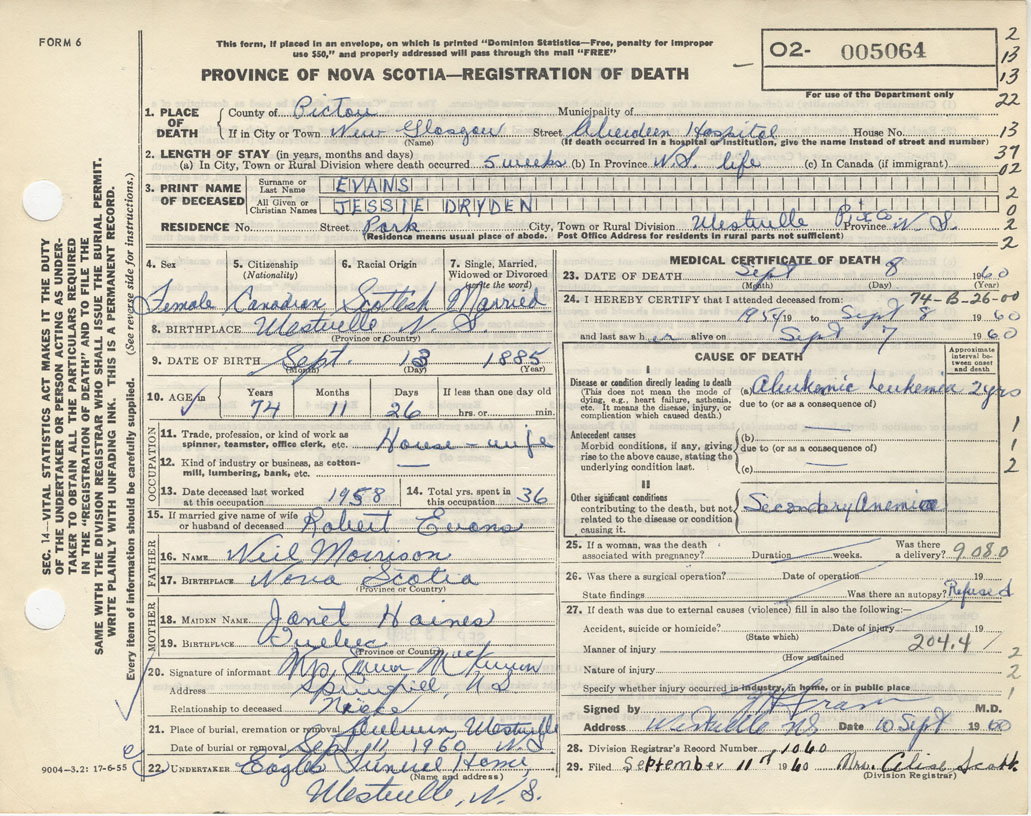 FORM 6
This form, if placed in an envelope, on which is printed "Dominion Statistics—Free, penalty for improper
use $50," and properly addressed will pass through the mail "FREE"
PROVINCE OF NOVA SCOTIA—REGISTRATION OF DEATH
O2- 005064
For use of the Department only
2
13
13
22
13
37
02
2
0
2
2
1. PLACE OF DEATH
County of Pictou Municipality of
If in City or Town New Glasgow Street Aberdeen Hospital House No.
(Name) (If death occurred in a hospital or institution, give the name instead of street and number)
2. LENGTH OF STAY (in years, months and days)
(a) In City, Town or Rural Division where death occurred 5 weeks (b) In Province N.S. life (c) In Canada (if immigrant)
3. PRINT NAME OF DECEASED
Surname or Last Name EVANS
All Given or Christian Names JESSIE DRYDEN
RESIDENCE No. Street Park City, Town or Rural Division Westville Picto Province N.S.
(Residence means usual place of abode. Post Office Address for residents in rural parts not sufficient)
4. Sex 5. Citizenship (Nationality) 6. Racial Origin 7. Single, Married, Widowed or Divorced (write the word)
Female Canadian Scottish Married
8. BIRTHPLACE Westville N.S.
(Province or Country)
9. DATE OF BIRTH Sept. 13 1885
(Month) (Day) (Year)
10. AGE in Years Months Days If less than one day
74 11 26 hrs. or min.
OCCUPATION
11. Trade, profession, or kind of work as spinner, teamster, office clerk, etc. House-wife
12. Kind of industry or business, as cotton-mill, lumbering, bank, etc. —
13. Date deceased last worked at this occupation 1958 14. Total yrs. spent in this occupation 36
15. If married give name of wife or husband of deceased Robert Evans
FATHER
16. NAME Neil Morrison
17. BIRTHPLACE Nova Scotia
(Province or Country)
MOTHER
18. MAIDEN NAME Janet Haines
19. BIRTHPLACE Quebec
(Province or Country)
20. Signature of informant Mrs.
Address Springhill, N S
Relationship to deceased Niece
21. Place of burial, cremation or removal Auburn, Westville
Date of burial or removal Sept. 11 1960 N.S.
22. UNDERTAKER Eagles Funeral Home,
(Name and address)
Westville, N.S.
9004-3.2: 17-6-55
SEC. 14—VITAL STATISTICS ACT MAKES IT THE DUTY
OF THE UNDERTAKER OR PERSON ACTING AS UNDER-
TAKER TO OBTAIN ALL THE PARTICULARS REQUIRED
IN THE "REGISTRATION OF DEATH" AND TO FILE THE
SAME WITH THE DIVISION REGISTRAR WHO SHALL ISSUE THE BURIAL PERMIT.
WRITE PLAINLY WITH UNFADING INK. THIS IS A PERMANENT RECORD.
Every item of information should be carefully supplied. (See reverse side for instructions.)
MEDICAL CERTIFICATE OF DEATH
23. DATE OF DEATH Sept 8 1960
(Month) (Day) (Year)
24. I HEREBY CERTIFY that I attended deceased from: 74-B-26-00
1954 19 to Sept 8 1960
and last saw her alive on Sept 7 1960
CAUSE OF DEATH
Approximate interval between onset and death
I
Disease or condition directly leading to death
(This does not mean the mode of dying, e.g., heart failure, asthenia, etc. It means the disease, injury, or complication which caused death.)
(a) Aleukemic Leukemia 2 yrs
due to (or as a consequence of)
Antecedent causes
Morbid conditions, if any, giving rise to the above cause, stating the underlying condition last.
(b) —
due to (or as a consequence of)
(c) —
1
1
2
II
Other significant conditions
contributing to the death, but not related to the disease or condition causing it.
Secondary Anemia
25. If a woman, was the death associated with pregnancy? Duration weeks. Was there a delivery? 9080
26. Was there a surgical operation? Date of operation 19
State findings Was there an autopsy? Refused
27. If death was due to external causes (violence) fill in also the following:—
Accident, suicide or homicide? Date of injury 19
(State which)
Manner of injury 204.4
(How sustained
Nature of injury
Specify whether injury occurred in industry, in home, or in public place
2
2
1
Signed by M.D.
Address Westville NS Date 10 Sept 1960
28. Division Registrar's Record Number 1060
29. Filed September 11th 1960 Mrs. Alise Scott
(Division Registrar)